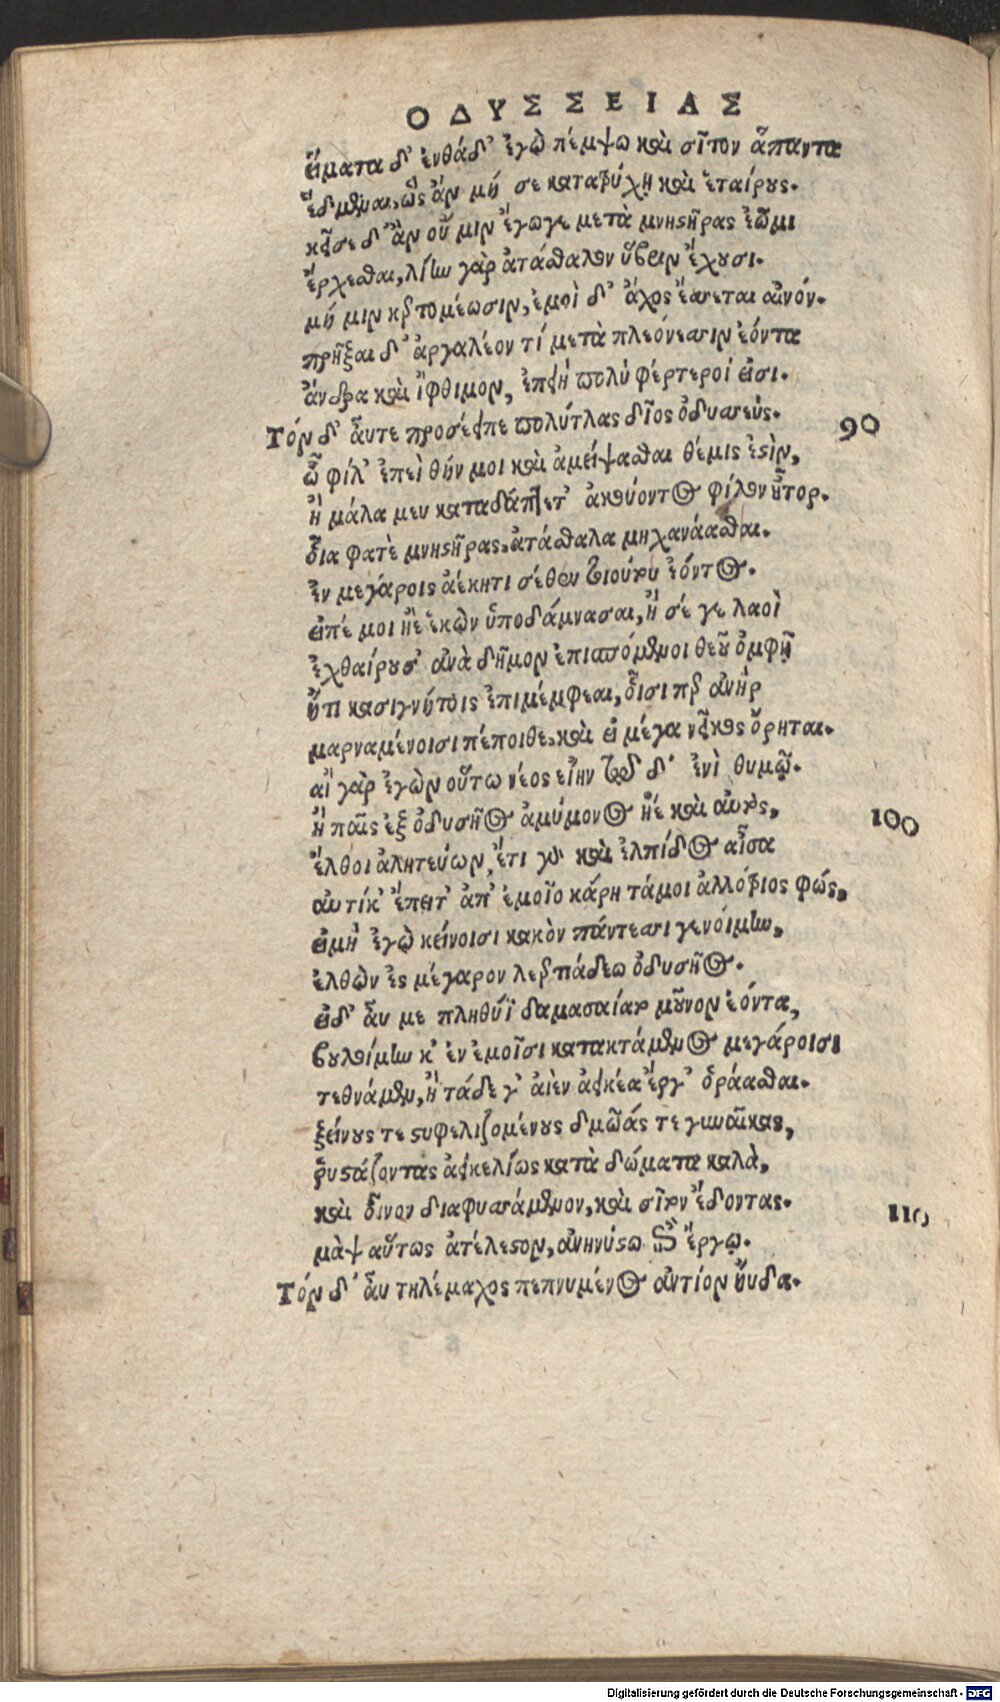 ΟΔΥΣΣΕΙΑΣ
εἵματα δ' ἐνθάδ' ἐγὼ πέμψω καὶ σῖτον ἅπαντα
ἔδμεναι, ὡς ἂν μή σε κατατρύχῃ καὶ ἑταίρους.
κεῖσε δ' ἂν οὔ μιν ἔγωγε μετὰ μνηστῆρας ἐῷμι
ἔρχεσθαι, λίην γὰρ ἀτάσθαλον ὕβριν ἔχουσι.
μή μιν κερτομέωσιν, ἐμοὶ δ' ἄχος ἔσσεται αἰνόν.
πρῆξαι δ' ἀργαλέον τί μετὰ πλεόνεσσιν ἐόντα
ἄνδρα καὶ ἴφθιμον, ἐπειὴ πολὺ φέρτεροί εἰσι.
Τόν δ' αὖτε προσέειπε πολύτλας δῖος ὀδυσσεύς. 90
ὦ φίλ' ἐπεὶ θήν μοι καὶ ἀμείψασθαι θέμις ἐστὶν,
ἦ μάλα μευ καταδάπτετ' ἀκούοντος φίλον ἦτορ.
οἷα φατὲ μνηστῆρας ἀτάσθαλα μηχανάασθαι.
ἐν μεγάροις ἀέκητι σέθεν τοιούτου ἐόντος.
εἰπέ μοι ἠὲ ἑκὼν ὑποδάμνασαι, ἦ σέ γε λαοὶ
ἐχθαίρουσ' ἀνὰ δῆμον ἐπισπόμενοι θεοῦ ὀμφῇ
ἤτι κασιγνήτοις ἐπιμέμφεαι, οἷσι περ ἀνὴρ
μαρναμένοισι πέποιθε, καὶ εἰ μέγα νεῖκος ὄρηται.
αἲ γὰρ ἐγὼν οὕτω νέος εἴην τῷδ' ἐνὶ θυμῷ.
ἢ παῖς ἐξ ὀδυσῆος ἀμύμονος ἠέ καὶ αὐτὸς, 100
ἔλθοι ἀλητεύων, ἔτι γὰρ καὶ ἐλπίδος αἶσα
αὐτίκ' ἔπειτ' ἀπ' ἐμοῖο κάρη τάμοι ἀλλότριος φώς,
εἰμὴ ἐγὼ κείνοισι κακὸν πάντεσσι γενοίμην,
ἐλθὼν ἐς μέγαρον λαερτιάδεω ὀδυσῆος.
εἰδ' αὖ με πληθύϊ δαμασαίατο μοῦνον ἐόντα,
βουλοίμην κ' ἐν ἐμοῖσι κατακτάμενος μεγάροισι
τεθνάμεν, ἢ τάδε γ' αἰὲν ἀεικέα ἔργ' ὁράασθαι.
ξείνους τε στυφελιζομένους δμωάς τε γυναῖκας,
ῥυστάζοντας ἀεικελίως κατὰ δώματα καλὰ,
καὶ οἶνον διαφυσσόμενον, καὶ σῖτον ἔδοντας. 110
μὰψ αὔτως ἀτέλεστον, ἀνηνύστῳ ἐπὶ ἔργῳ.
Τόν δ' αὖ τηλέμαχος πεπνυμένος ἀντίον ηὔδα.
Digitalisierung gefördert durch die Deutsche Forschungsgemeinschaft - DFG